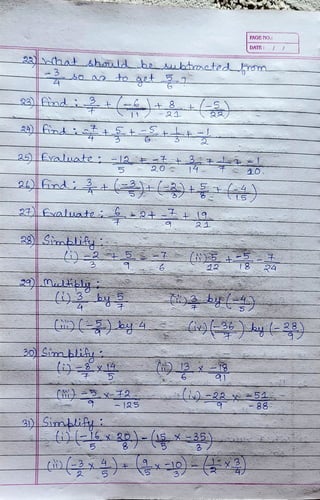 PAGE NO.:
DATE: / /
22) What should be subtracted from
-3/4 so as to get 5/6 ?
23) Find : 3/7 + (-6/11) + 8/21 + (-5/22)
24) Find : -7/4 + 5/3 + -5/6 + 1/3 + -1/2
25) Evaluate : -12/5 + -7/20 + 3/14 + 1/7 + -1/10
26) Find : 3/4 + (-3/5) + (-2/3) + 5/8 + (-4/15)
27) Evaluate : 6/7 - 2 + -7/9 + 19/21
28) Simplify :
(i) -2/3 + 5/9 - -7/6 (ii) 5/12 + -5/18 - 7/24
29) Multiply :
(i) 3/4 by 5/7 (ii) 3/7 by (-4/5)
(iii) (-5/9) by 4 (iv) (-36/7) by (-28/9)
30) Simplify :
(i) -8/7 × 14/5 (ii) 13/6 × -18/91
(iii) -5/9 × 72/-125 (iv) -22/9 × -51/-88
31) Simplify :
(i) (-16/5 × 20/8) - (15/5 × -35/3)
(ii) (-3/2 × 4/5) + (9/5 × -10/3) - (1/2 × 3/4)